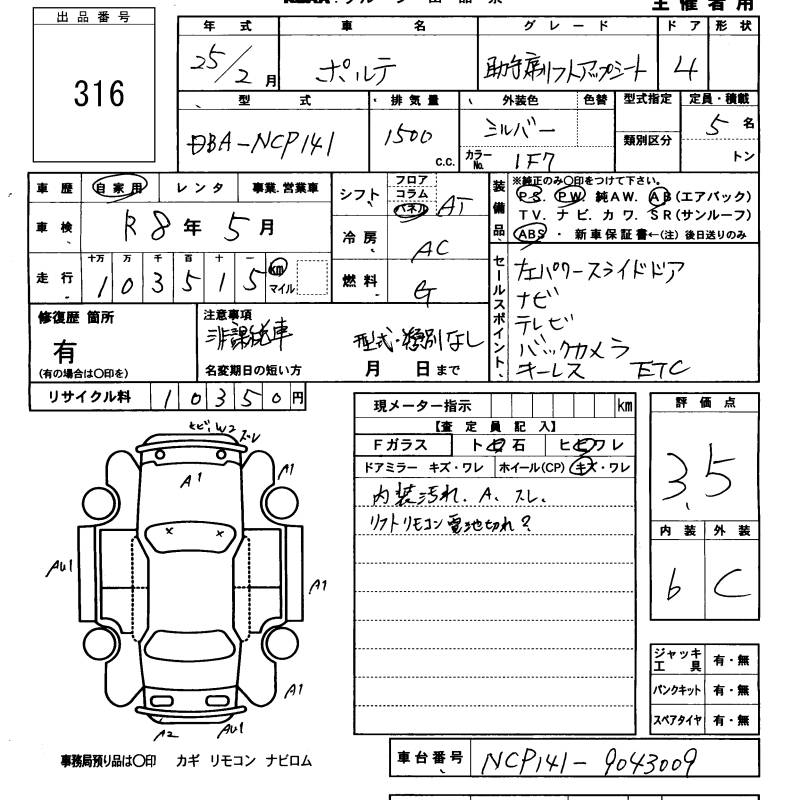 出品番号
316
主催者用
年式 車名 グレード ドア 形状
25/2月 ポルテ 助手席リフトアップシート 4
型式 排気量 外装色 色替 型式指定 定員・積載
DBA-NCP141 1500 c.c. シルバー 類別区分 5名
カラーNo. 1F7 トン
車歴 自家用 レンタ 事業.営業車
車検 R8年5月
走行 十万 万 千 百 十 一
103515 km マイル
シフト フロア コラム パネル AT
冷房 AC
燃料 G
装備品
※純正のみ〇印をつけて下さい。
PS. PW. 純AW. AB(エアバック)
TV. ナビ. カワ. SR(サンルーフ)
ABS ・ 新車保証書←(注)後日送りのみ
セールスポイント
左パワースライドドア
ナビ
テレビ
バックカメラ
キーレス ETC
修復歴 箇所
有
(有の場合は〇印を)
注意事項
非課税車 型式・類別なし
名変期日の短い方 月 日まで
リサイクル料 10350円
現メーター指示 km
【査定員記入】
Fガラス ト日石 ヒビワレ
ドアミラー キズ・ワレ ホイール(CP) キズ・ワレ
内装汚れ.A.スレ.
リフトリモコン電池切れ?
評価点
3.5
内装 外装
b C
ジャッキ工具 有・無
パンクキット 有・無
スペアタイヤ 有・無
ヒビ.W2 ズレ
A1
A1
AU1
A1
A1
A2 AU1
事務局預り品は〇印 カギ リモコン ナビロム
車台番号 NCP141-9043009